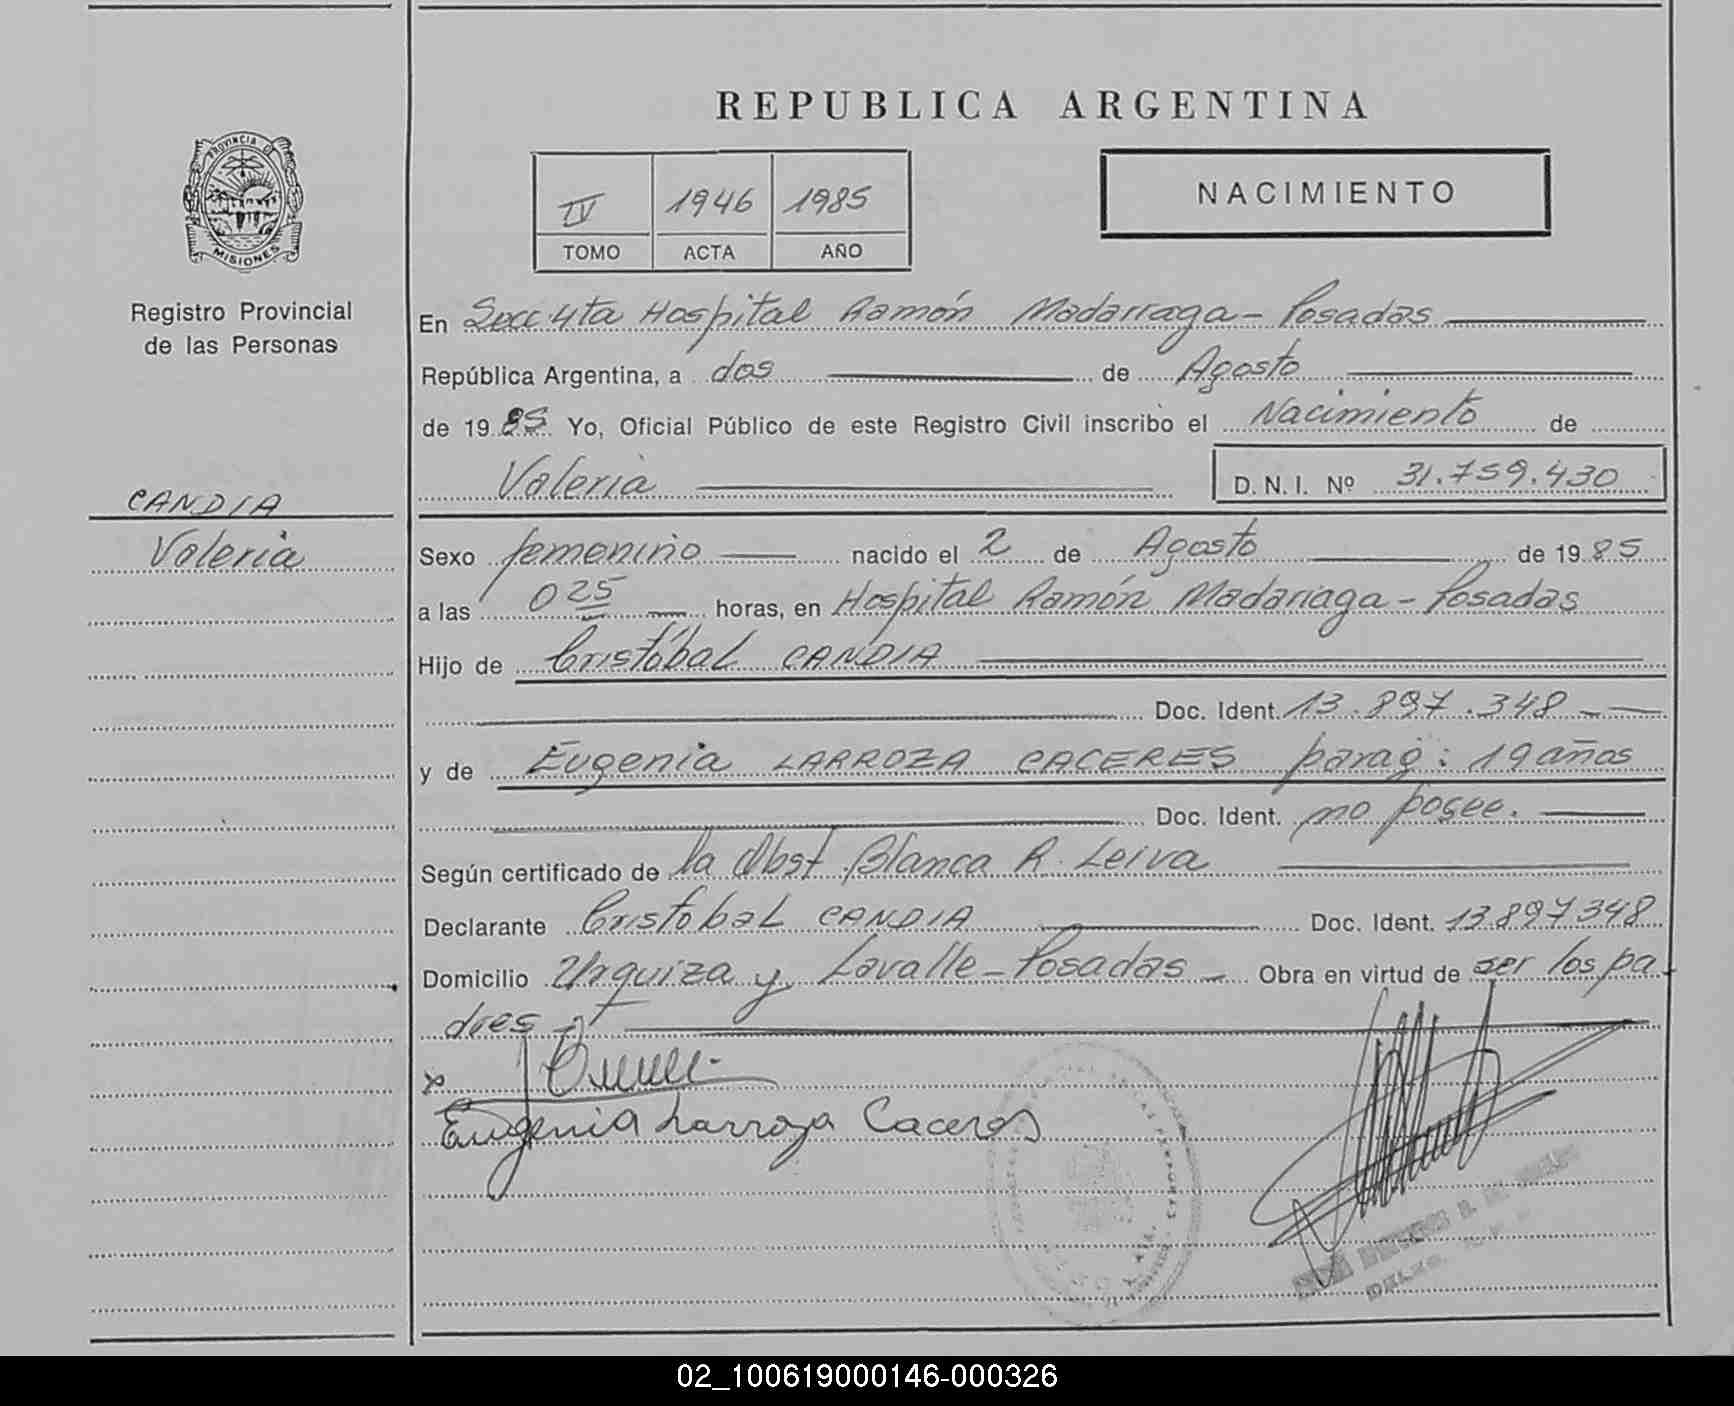 REPUBLICA ARGENTINA
PROVINCIA DE
MISIONES
IV 1946 1985
TOMO ACTA AÑO
NACIMIENTO
Registro Provincial
de las Personas
En Secc 4ta Hospital Ramón Madarraga - Posadas
República Argentina, a dos de Agosto
de 19 85 Yo, Oficial Público de este Registro Civil inscribo el Nacimiento de
Valeria D. N. I. Nº 31.759.430
CANDIA
Valeria
Sexo femenino nacido el 2 de Agosto de 19 85
a las 0 25 horas, en Hospital Ramón Madariaga - Posadas
Hijo de Cristóbal CANDIA
Doc. Ident. 13.897.348
y de Eugenia LARROZA CACERES parag: 19 años
Doc. Ident. no posee.
Según certificado de la Obst Blanca R. Leiva
Declarante Cristobal CANDIA Doc. Ident. 13.897348
Domicilio Urquiza y Lavalle - Posadas Obra en virtud de ser los pa
dres
x
Eugenia Larroza Caceres
02_100619000146-000326